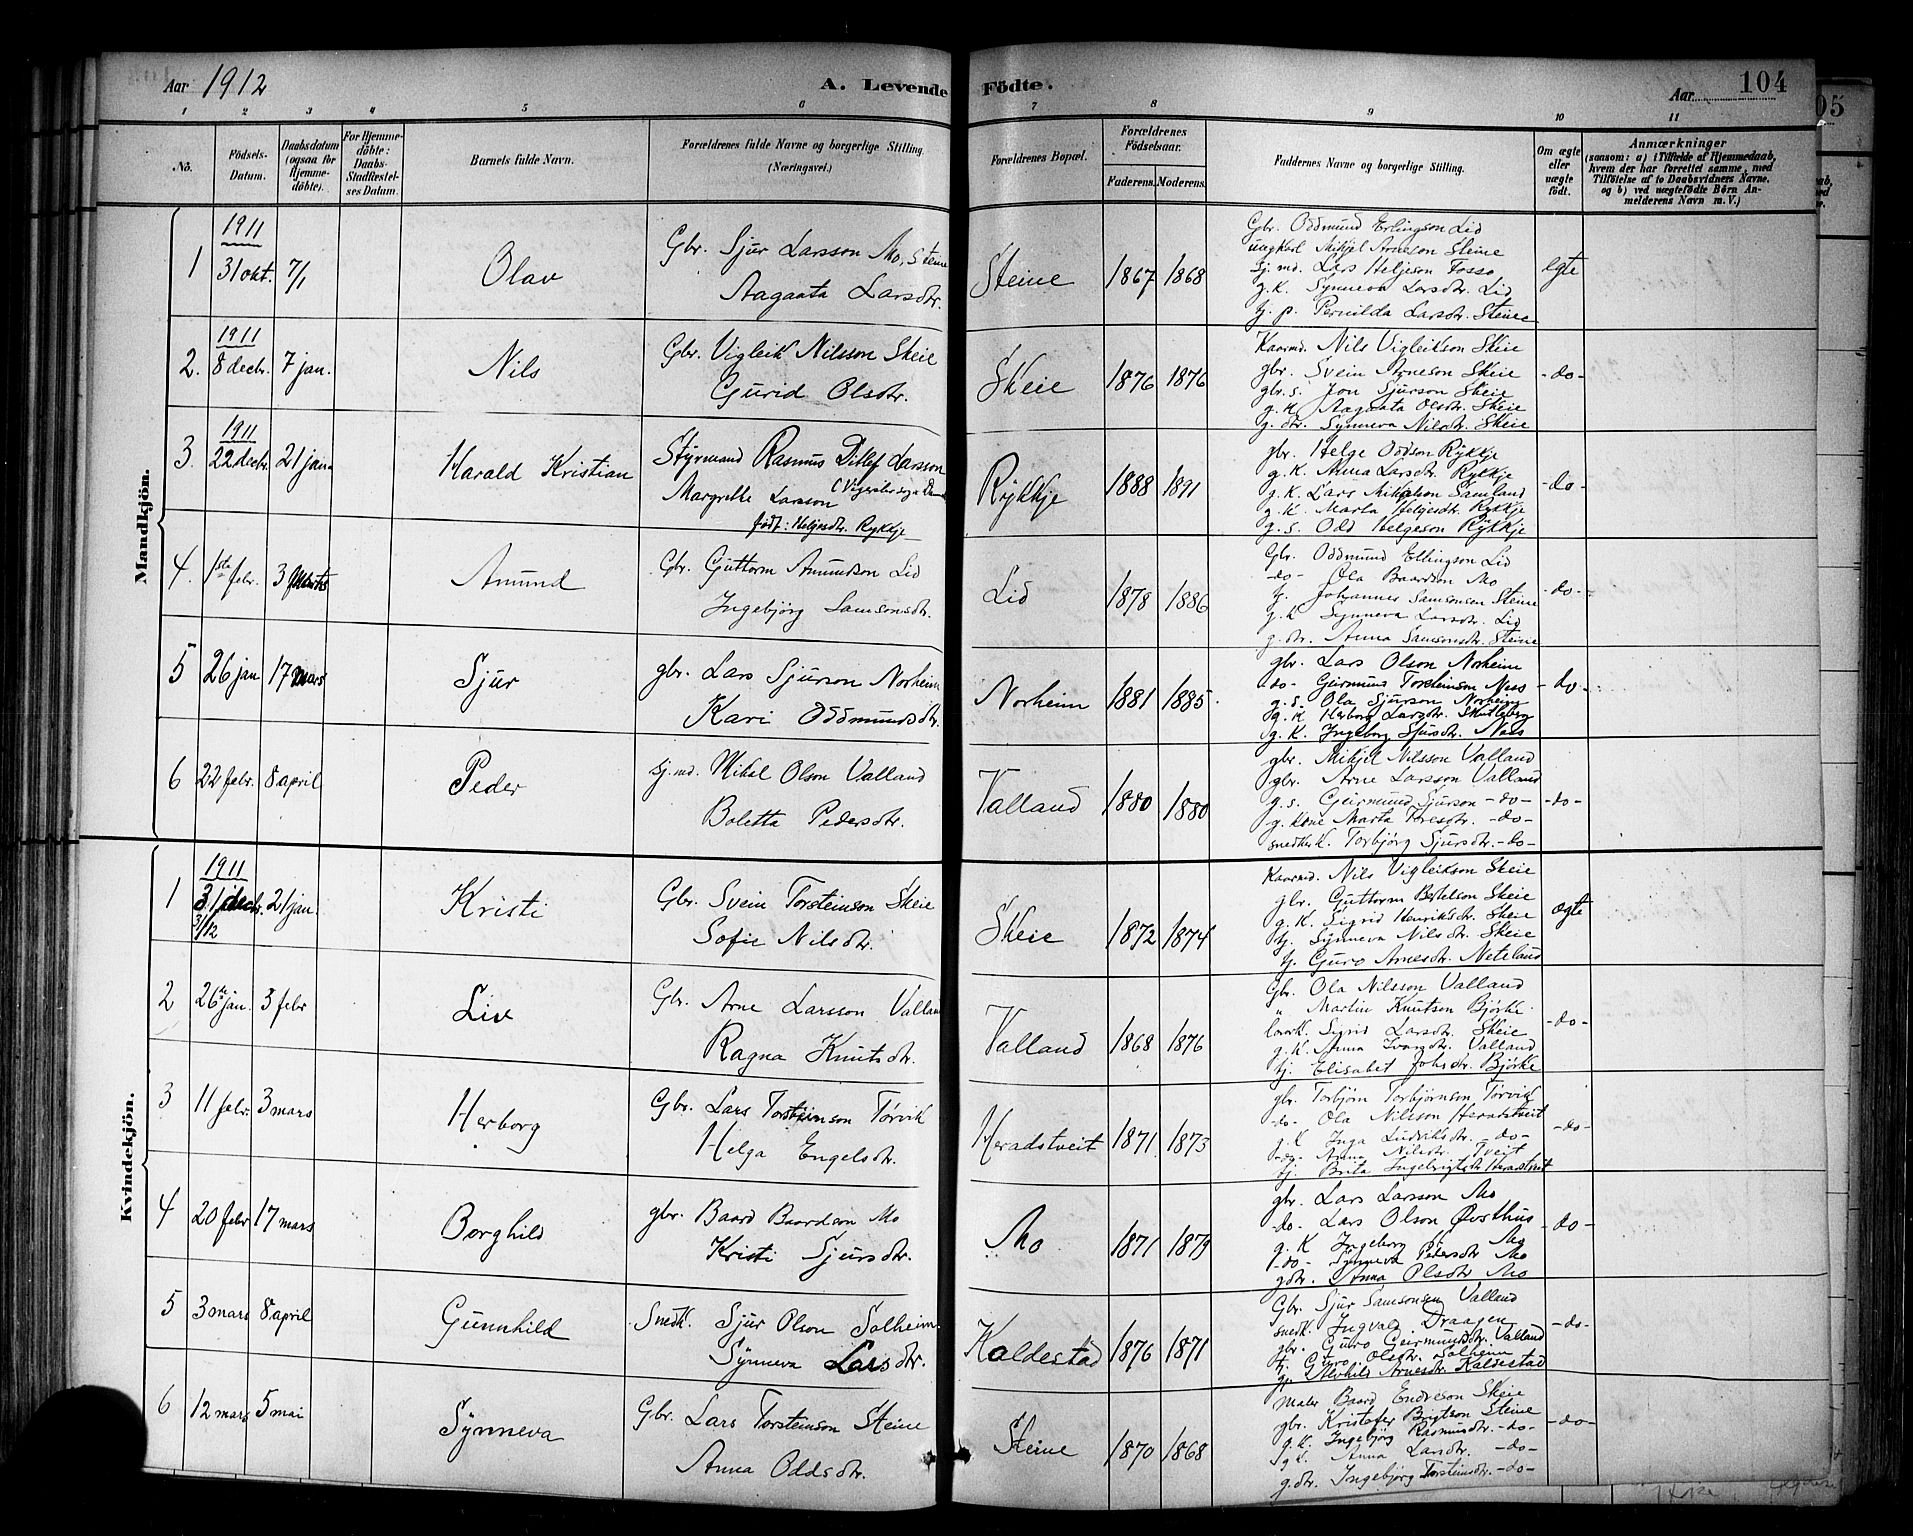 Aar 1912
A. Levende Födte.
Aar
104
05
1 2 3 4 5 6 7 8 9 10 11
No.
Födsels-Datum.
Daabsdatum (ogsaa for Hjemme-döbte).
For Hjemme-döbte: Daabs-Stadfæstel-ses Datum.
Barnets fulde Navn.
Forældrenes fulde Navne og borgerlige Stilling. (Næringsvei.)
Forældrenes Bopæl.
Forældrenes Födselsaar.
Faderens. Moderens.
Faddernes Navne og borgerlige Stilling.
Om ægte eller uægte födt.
Anmærkninger
(saasom: a) i Tilfælde af Hjemmedaab,
hvem der har forrettet samme, med
Tilföielse af to Daabsvidners Navne.
og b) ved uægtefödte Börn An-
melderens Navn m. V.)
Mandkjön.
1 1911 31 okt. 7/1 Olav
Gbr. Sjur Larsson Mo, Steine
Aagaata Larsdtr.
Steine 1867 1868
Gbr. Oddmund Erlingson Lid
ungkarl Mikjel Arneson Steine
sj. md. Lars Heljeson Fosso
g.k. Synneva Larsdtr. Lid
tj. p. Pernilda Larsdtr. Steine
egte
2. 1911 8 decbr. 7 jan. Nils
Gbr. Vigleik Nilsson Skeie
Gurid Olsdtr.
Skeie 1876 1876
Kaarmd. Nils Vigleikson Skeie
gbr. Svein Arneson Skeie
gbr. s. Jon Sjurson Skeie
g. k. Aagaata Olsdtr. Skeie
g. dtr. Synneva Nilsdtr. Skeie
-do-
3. 1911 22 decbr. 21 jan. Harald Kristian
Styrmand Rasmus Ditlef Larsson
Margrethe Larsson
født: Helgesdtr. Rykkje
Rykkje 1888 1891
gbr. Helge Oddson Rykkje
g.K. Anna Larsdtr. Rykkje
g.K. Lars Mikjelson Samland
g.k. Marta Helgesdtr. Rykkje
g.s. Odd Helgeson Rykkje
-do-
4. 1ste febr. 3 marts Amund
Gbr. Guttorm Amundson Lid
Ingebjørg Samsonsdtr.
Lid 1878 1886
Gbr. Oddmund Erlingson Lid
-do- Ola Baardson Mo
tj. Johannes Samsonsen Steine
g.k Synneva Larsdtr. Lid
g.dtr. Anna Samsonsdtr. Steine
-do-
5 26 jan 17 mars Sjur
gbr. Lars Sjurson Norheim
Kari Oddmundsdtr.
Norheim 1881 1885
gbr. Lars Olson Norheim
-do- Geirmund Torsteinson Ness
g.s. Ola Sjurson Norheim
g.k Herborg Larsdtr. Skutleberg
g.K. Ingeborg Sjursdtr. Ness
-do-
6 22 febr. 8 april Peder
sj. md. Mikal Olson Valland
Boletta Pedersdtr.
Valland 1880 1880
gbr. Mikjel Nilsson Valland
gbr. Arne Larsson Valland
g.s. Geirmund Sjurson -do-
g. kone Marta Toresdtr. -do-
snedker k. Torbjørg Sjursdtr. -do-
-do-
Kvindekjön.
1 1911 31 decbr. 3/12 21 jan. Kristi
Gbr. Svein Torsteinson Skeie
Sofie Nilsdtr.
Skeie 1872 1874
Kaarmd. Nils Vigleikson Skeie
gbr. Guttorm Bertelson Skeie
g.K. Sigrid Henriksdtr. Skeie
tj. Synneva Nilsdtr. Skeie
tj. Guro Arnesdtr. Neteland
ægte
2 26de jan. 3 febr Liv
Gbr. Arne Larsson Valland
Ragna Knutsdtr.
Valland 1868 1876
Gbr. Ola Nilsson Valland
" Martin Knutson Bjørke
Sigrid Larsdtr. Skeie
g.K. Anna Ivarsdtr. Valland
tj. Elisabet Johsdtr. Bjørke
-do-
3 11 febr. 3 mars Herborg
Gbr. Lars Torsteinson Tørvik
Helga Engelsdtr.
Heradstveit 1871 1873
gbr. Torbjørn Torbjørnson Tørvik
-do- Ola Nilsson Heradstveit
g.k Inga Ludviksdtr. -do-
Anna Nilsdtr. Tveit
tj. Brita Ingebrigtsdtr. Heradstveit
-do-
4 20 febr 17 mars Borghild
gbr. Baard Baardson Mo
Kristi Sjursdtr.
Mo 1871 1879
gbr. Lars Larsson Mo
-do- Lars Olson Øvsthus
g.K Ingeborg Mo
-do- Synneva Pedersdtr Mo
gdtr. Anna Olsdtr Mo
-do-
5 3 mars 8 april Gunnhild
Snedk. Sjur Olson Solheim
Synneva Larsdtr.
Kaldestad 1876 1871
Gbr. Sjur Samsonsen Valland
snedk. Ingvald Draagen
gbr. Guro Geirmundsdtr. Valland
tj. Guro Olsdtr. Solheim
gp. Alvhild Arnesdtr. Kaldestad
-do-
6 12 mars 5 mai Synneva
Gbr. Lars Torsteinson Steine
Anna Oddsdtr.
Steine 1870 1868
Maler Baard Endreson Skeie
gbr. Kristofer Brigtson Steine
g.K. Ingebjørg Rasmusdtr. -do-
gk. Anna Larsdtr. -do-
g.dtr. Ingebjørg Torsteinsdtr. -do-
-do-